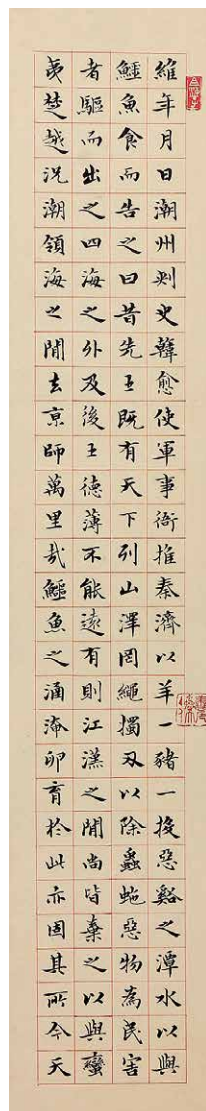 維年月日潮州刺史韓愈使軍事衙推秦濟以羊一豬一投惡谿之潭水以與
鱷魚食而告之曰昔先王既有天下列山澤罔繩擉刃以除蟲蛇惡物為民害
者驅而出之四海之外及後王德薄不能遠有則江漢之閒尚皆棄之以與蠻
夷楚越況潮領海之閒去京師萬里哉鱷魚之涵淹卵育於此亦固其所今天